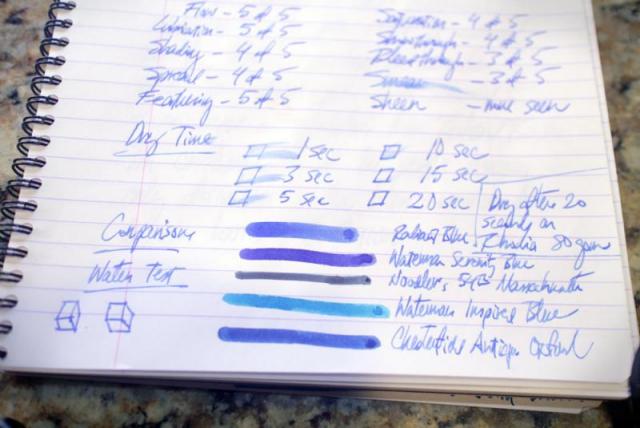 Flow - 5 of 5
Lubrication - 5 of 5
Shading - 4 of 5
Spread - 4 of 5
Feathering - 5 of 5
Saturation - 4 of 5
Showthrough - 4 of 5
Bleedthrough - 3 of 5
Smear - 3 of 5
Sheen - none seen
Dry Time
1 sec
3 sec
5 sec
10 sec
15 sec
20 sec
Dry after 20
seconds on
Rhodia 80 gsm
Comparisons
Radiant Blue
Waterman Serenity Blue
Noodler's 54th Massachusetts
Waterman Inspired Blue
Chesterfield Antique Oxford
Water Test